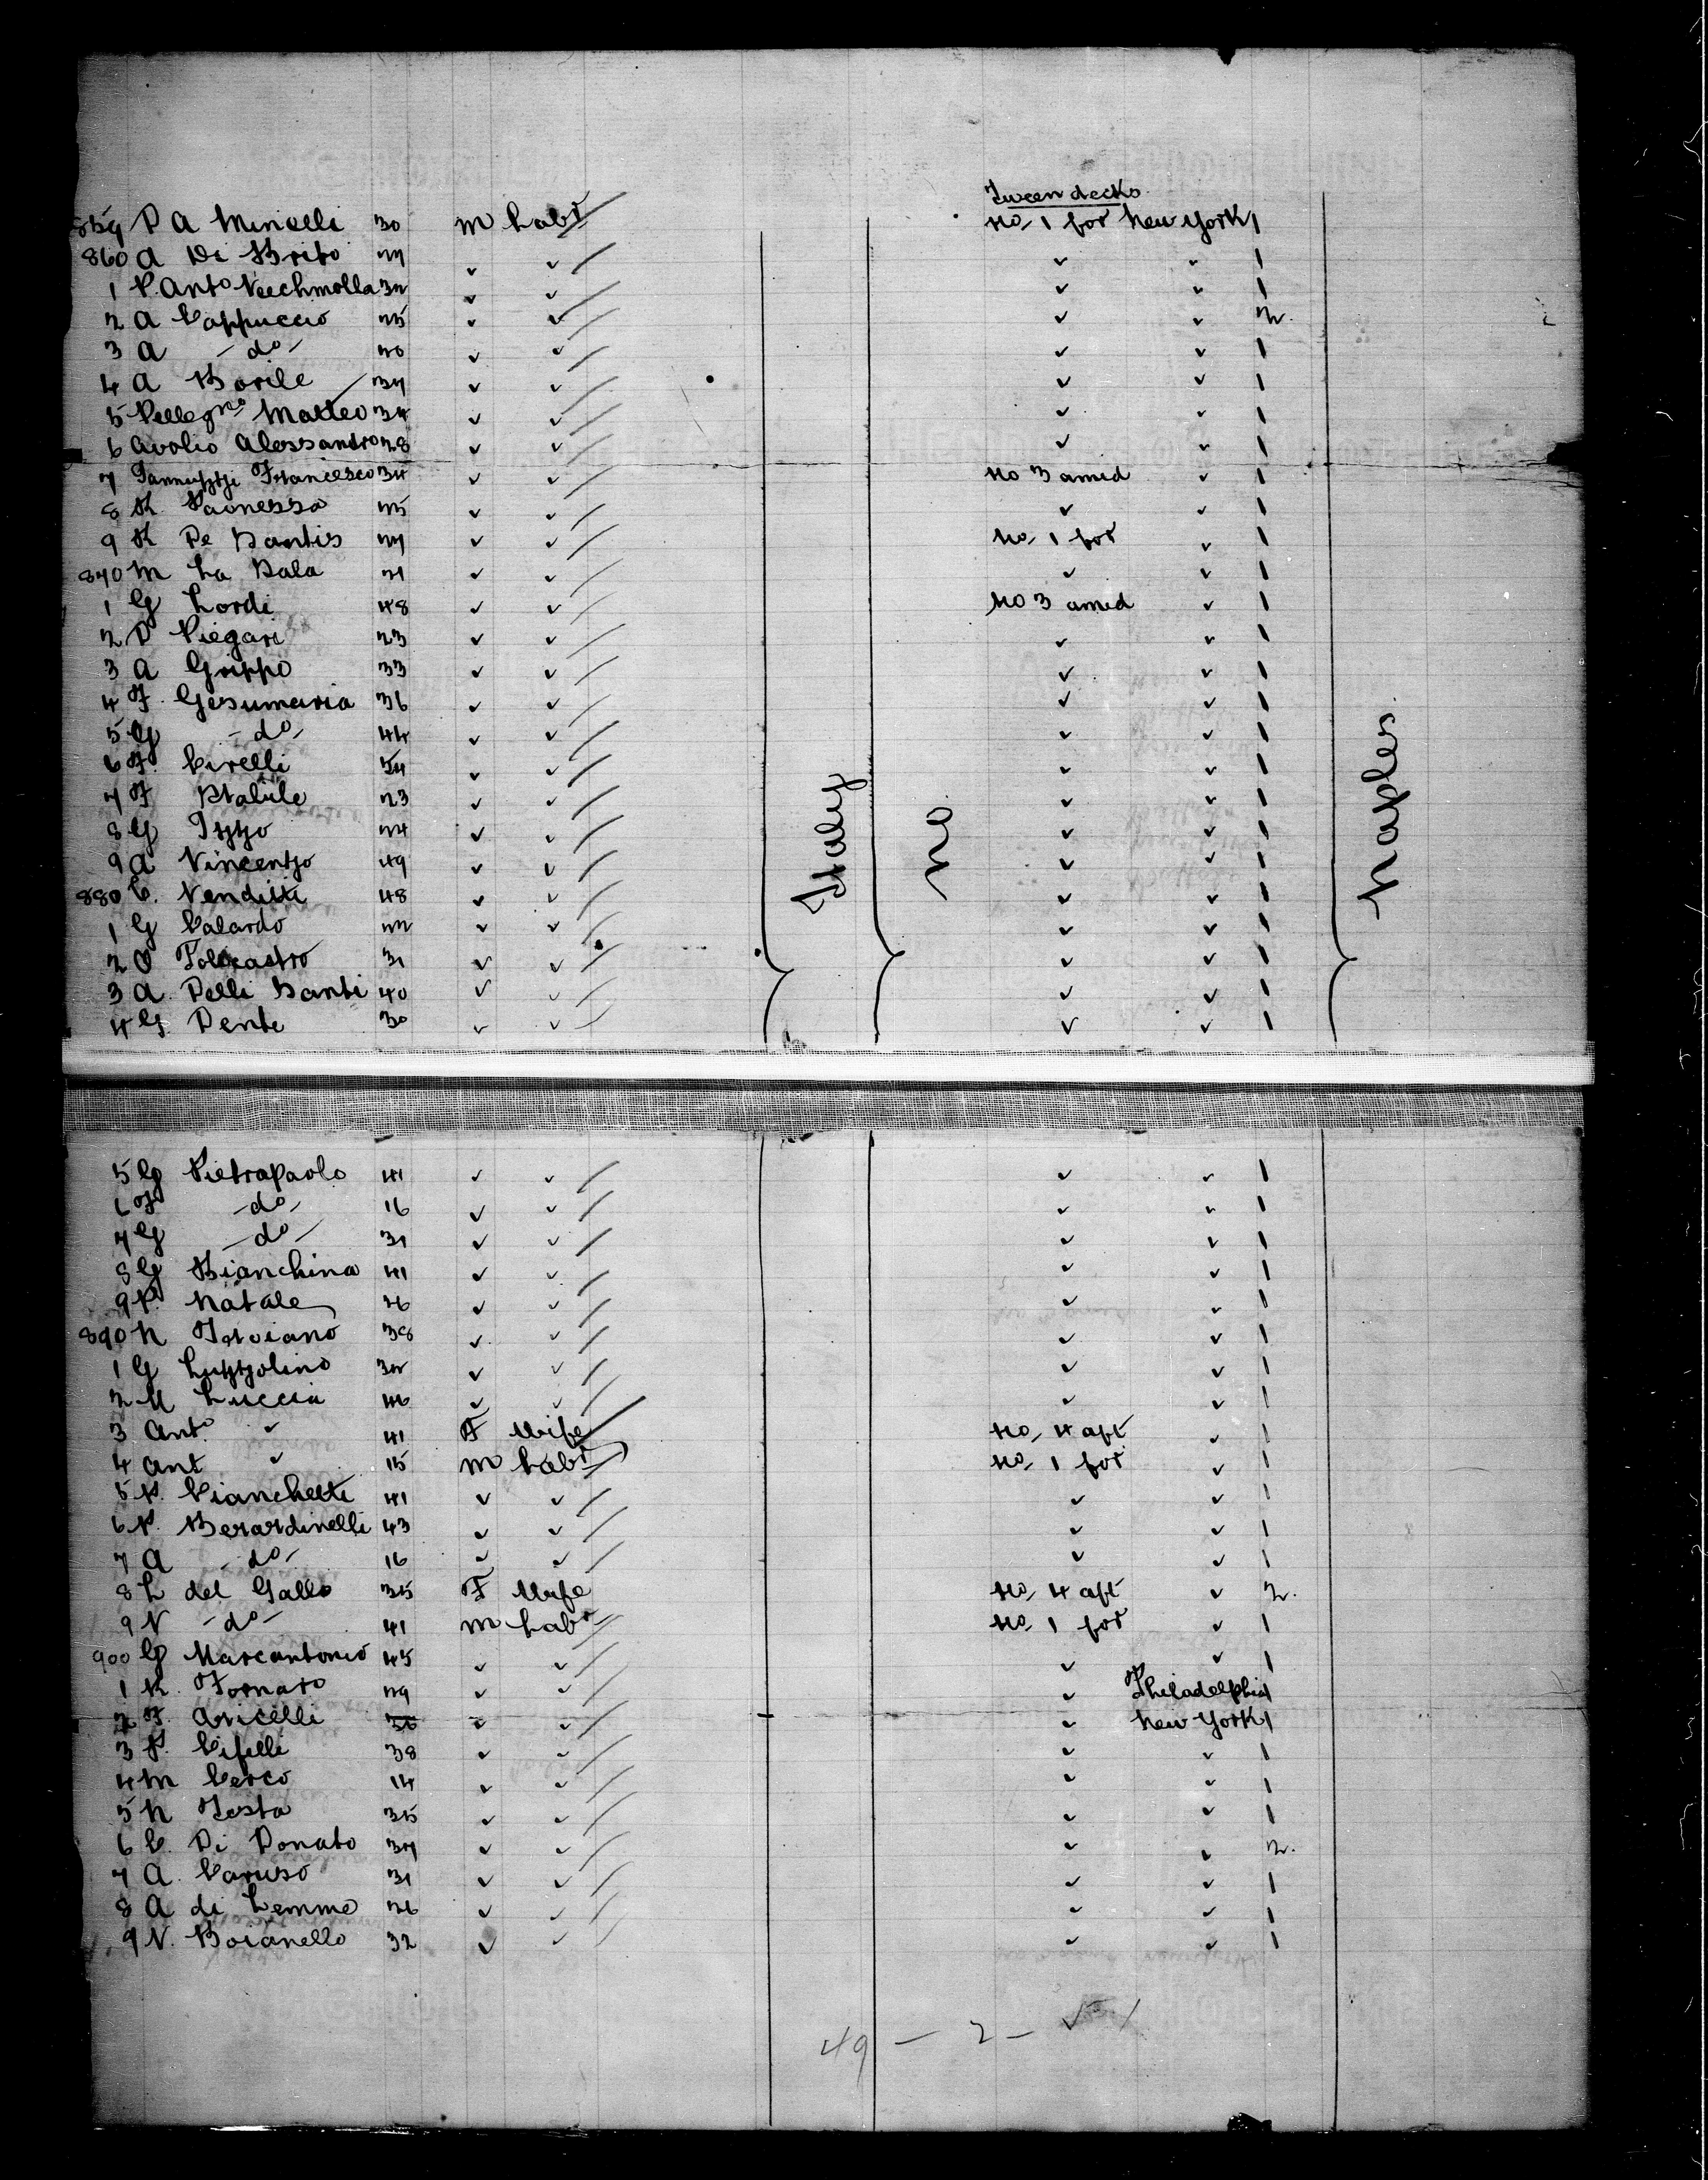 Tween decks
859 D A Minelli 30 m Labr No. 1 for New York 1
860 A Di Brito 27 ✓ ✓ ✓ ✓ 1
1 P. Anto Vecchmolla 32 ✓ ✓ ✓ ✓ 1
2 A Cappuccio 25 ✓ ✓ ✓ ✓ 2.
3 A -do- 20 ✓ ✓ ✓ ✓ 1
4 A Borile 37 ✓ ✓ ✓ ✓ 1
5 Pellegno Matteo 34 ✓ ✓ ✓ ✓ 1
6 Avolio Alessandro 28 ✓ ✓ ✓ ✓ 1
7 Iannuzzi Francesco 34 ✓ ✓ No 3 amid ✓ 1
8 R. Paonessa 25 ✓ ✓ ✓ ✓ 1
9 R De Santis 27 ✓ ✓ No. 1 for ✓ 1
870 M La Sala 21 ✓ ✓ ✓ ✓ 1
1 G Lordi 48 ✓ ✓ No 3 amid ✓ 1
2 D Piegari 23 ✓ ✓ ✓ ✓ 1
3 A Grippo 33 ✓ ✓ ✓ ✓ 1
4 F. Gesumaria 36 ✓ ✓ ✓ ✓ 1
5 G -do- 44 ✓ ✓ ✓ ✓ 1
6 F. Cirelli 54 ✓ ✓ ✓ ✓ 1
7 F Stabile 23 ✓ ✓ ✓ ✓ 1
8 G Izzo 24 ✓ ✓ ✓ ✓ 1
9 A Vincenzo 49 ✓ ✓ ✓ ✓ 1
880 C. Venditti 48 ✓ ✓ ✓ ✓ 1
1 G Calardo 22 ✓ ✓ ✓ ✓ 1
2 O 31 ✓ ✓ ✓ ✓ 1
3 A. Delli Santi 40 ✓ ✓ ✓ ✓ 1
4 G. Dente 30 ✓ ✓ ✓ ✓ 1
Italy
no
Naples
5 G Pietrapaolo 41 ✓ ✓ ✓ ✓ 1
6 F -do- 16 ✓ ✓ ✓ ✓ 1
7 G -do- 31 ✓ ✓ ✓ ✓ 1
8 G Bianchina 41 ✓ ✓ ✓ ✓ 1
9 P. Natale 26 ✓ ✓ ✓ ✓ 1
890 N Troiano 38 ✓ ✓ ✓ ✓ 1
1 G Luzzolino 32 ✓ ✓ ✓ ✓ 1
2 M Luccia 46 ✓ ✓ ✓ ✓ 1
3 Anto ✓ 41 F Wife No. 4 aft ✓ 1
4 Ant ✓ 15 m Labr No. 1 for ✓ 1
5 P. Cianchetti 41 ✓ ✓ ✓ ✓ 1
6 P. Berardinelli 43 ✓ ✓ ✓ ✓ 1
7 A -do- 16 ✓ ✓ ✓ ✓ 1
8 L del Gallo 35 F Wife No. 4 aft ✓ 2.
9 V -do- 41 m Labr No. 1 for ✓ 1
900 G Marcantonio 45 ✓ ✓ ✓ ✓ 1
1 R. Fornaro 29 ✓ ✓ ✓ Philadelphia 1
2 F. Aricelli ✓ ✓ ✓ New York 1
3 P. Cifelli 38 ✓ ✓ ✓ ✓ 1
4 M Cerco 14 ✓ ✓ ✓ ✓ 1
5 N Testa 35 ✓ ✓ ✓ ✓ 1
6 C. Di Donato 37 ✓ ✓ ✓ ✓ 2.
7 A. Caruso 31 ✓ ✓ ✓ ✓ 1
8 A di Lemme 26 ✓ ✓ ✓ ✓ 1
9 V. Boianello 32 ✓ ✓ ✓ ✓ 1
49 - 2 -